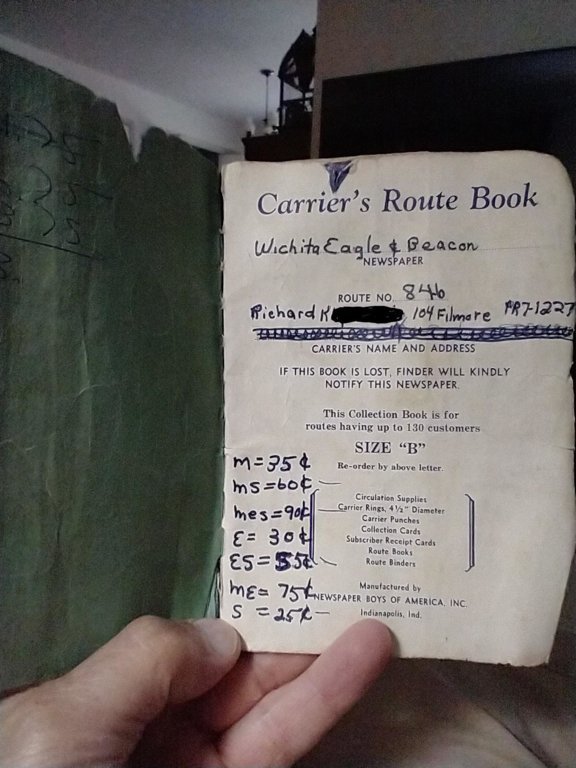 Carrier's Route Book
Wichita Eagle & Beacon
NEWSPAPER
ROUTE NO. 846
Richard K 104 Filmore PR7-1227
CARRIER'S NAME AND ADDRESS
IF THIS BOOK IS LOST, FINDER WILL KINDLY
NOTIFY THIS NEWSPAPER.
This Collection Book is for
routes having up to 130 customers
SIZE "B"
Re-order by above letter.
M = 35¢
MS = 60¢
MES = 90¢
E = 30¢
ES = 55¢
ME = 75¢
S = 25¢
Circulation Supplies
Carrier Rings, 4½" Diameter
Carrier Punches
Collection Cards
Subscriber Receipt Cards
Route Books
Route Binders
Manufactured by
NEWSPAPER BOYS OF AMERICA, INC.
Indianapolis, Ind.